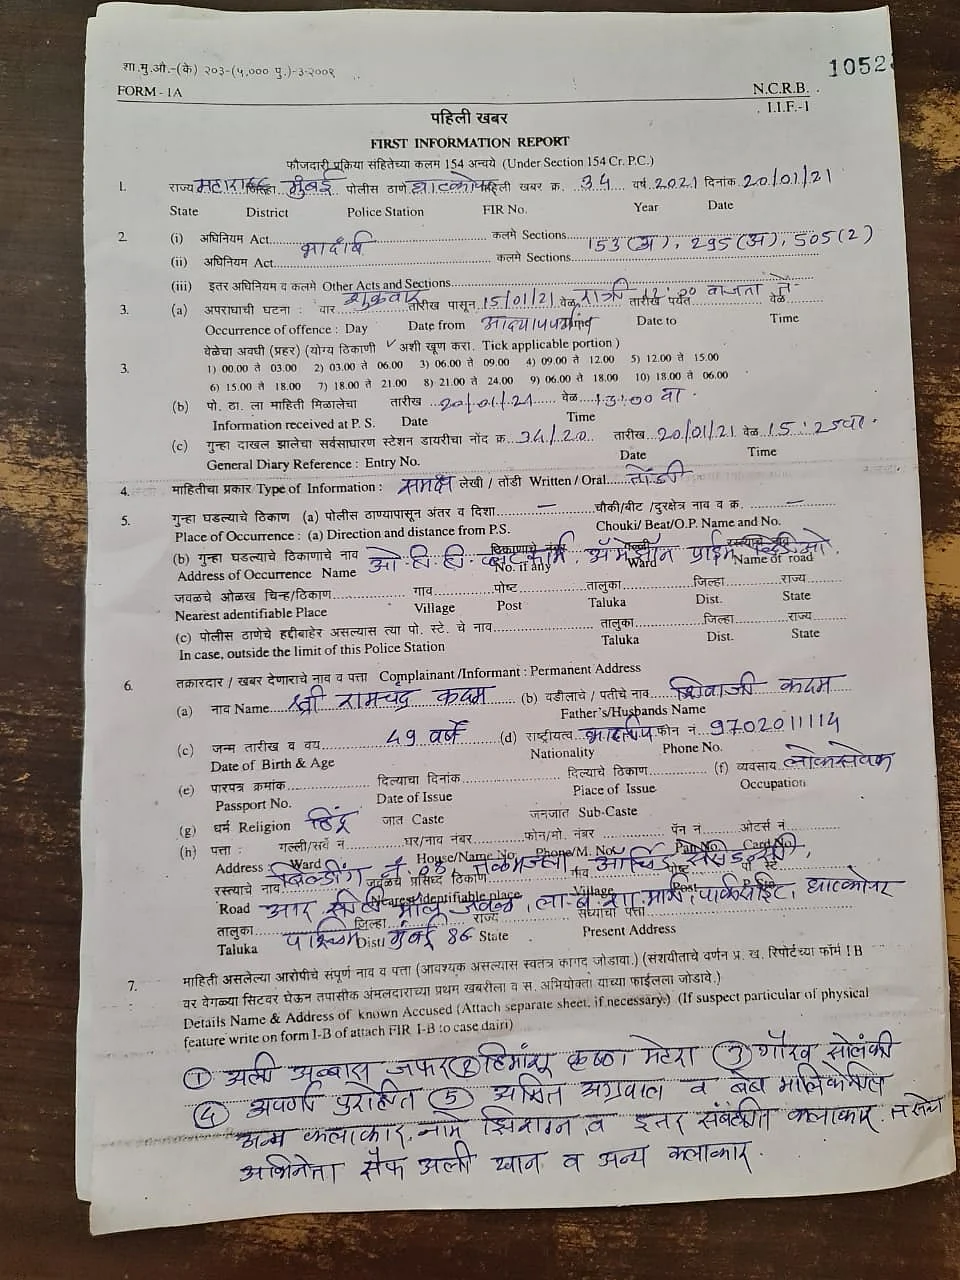 शा.मु.औ.-(के) २०३-(५,००० पु.)-३-२००९
1052
FORM - 1A
N.C.R.B.
I.I.F.-1
पहिली खबर
FIRST INFORMATION REPORT
फौजदारी प्रक्रिया संहितेच्या कलम 154 अन्वये (Under Section 154 Cr. P.C.)
1. राज्य महाराष्ट्र जिल्हा मुंबई पोलीस ठाणे घाटकोपर पहिली खबर क्र. 34 वर्ष 2021 दिनांक 20/01/21
State District Police Station FIR No. Year Date
2. (i) अधिनियम Act भादंवि कलमे Sections 153(अ), 295(अ), 505(2)
(ii) अधिनियम Act कलमे Sections
(iii) इतर अधिनियम व कलमे Other Acts and Sections
3. (a) अपराधाची घटना : वार शुक्रवार तारीख पासून 15/01/21 वेळ रात्री 12:00 वाजता ते तारीख पर्यंत वेळ
Occurrence of offence : Day Date from आद्यापपर्यंत Date to Time
3. वेळेचा अवधी (प्रहर) (योग्य ठिकाणी ✓ अशी खूण करा. Tick applicable portion )
1) 00.00 ते 03.00 2) 03.00 ते 06.00 3) 06.00 ते 09.00 4) 09.00 ते 12.00 5) 12.00 ते 15.00
6) 15.00 ते 18.00 7) 18.00 ते 21.00 8) 21.00 ते 24.00 9) 06.00 ते 18.00 10) 18.00 ते 06.00
(b) पो. ठा. ला माहिती मिळालेचा तारीख 20/01/21 वेळ 13:00 वा.
Information received at P. S. Date Time
(c) गुन्हा दाखल झालेचा सर्वसाधारण स्टेशन डायरीचा नोंद क्र. 34/20 तारीख 20/01/21 वेळ 15:25 वा.
General Diary Reference : Entry No. Date Time
4. माहितीचा प्रकार Type of Information : समक्ष लेखी / तोंडी Written / Oral तोंडी
5. गुन्हा घडल्याचे ठिकाण (a) पोलीस ठाण्यापासून अंतर व दिशा — चौकी/बीट /दुरक्षेत्र नाव व क्र. —
Place of Occurrence : (a) Direction and distance from P.S. Chouki/ Beat/O.P. Name and No.
(b) गुन्हा घडल्याचे ठिकाणाचे नाव ओ.टी.टी. प्लॅटफॉर्म, अ‍ॅमेझॉन प्राईम व्हिडिओ.
Address of Occurrence Name No. if any Ward Name of road
जवळचे ओळख चिन्ह/ठिकाण गाव पोष्ट तालुका जिल्हा राज्य
Nearest adentifiable Place Village Post Taluka Dist. State
(c) पोलीस ठाणेचे हद्दीबाहेर असल्यास त्या पो. स्टे. चे नाव तालुका जिल्हा राज्य
In case, outside the limit of this Police Station Taluka Dist. State
6. तक्रारदार / खबर देणाराचे नाव व पत्ता Complainant /Informant : Permanent Address
(a) नाव Name श्री रामचंद्र कदम (b) वडीलाचे / पतीचे नाव शिवाजी कदम
Father's/Husbands Name
(c) जन्म तारीख व वय 49 वर्षे (d) राष्ट्रीयत्व भारतीय फोन नं. 9702011114
Date of Birth & Age Nationality Phone No.
(e) पारपत्र क्रमांक दिल्याचा दिनांक दिल्याचे ठिकाण (f) व्यवसाय लोकसेवक
Passport No. Date of Issue Place of Issue Occupation
(g) धर्म Religion हिंदू जात Caste जनजात Sub-Caste
(h) पत्ता : गल्ली/सर्व नं. घर/नाव नंबर फोन/मो. नंबर पॅन नं. ओटर्स नं.
Address Ward House/Name No. Phone/M. No. Pan No. Card No.
बिल्डींग नं. 03 तळमजला ऑर्चिड रेसीडन्सी,
रस्त्याचे नाव जवळचे प्रसिध्द ठिकाण गाव पोष्ट पो स्टे
Road Nearest identifiable place Village Post
आर सीटी मॉल जवळ, ला.ब.शा.मार्ग, पार्कसाईट, घाटकोपर
तालुका जिल्हा राज्य सध्याचा पत्ता
Taluka पश्चिम Dist. मुंबई 86 State Present Address
7. माहिती असलेल्या आरोपीचे संपूर्ण नाव व पत्ता (आवश्यक असल्यास स्वतत्र कागद जोडावा.) (संशयीताचे वर्णन प्र. ख. रिपोर्टच्या फॉर्म I B
वर वेगळ्या सिटवर घेऊन तपासीक अंमलदाराच्या प्रथम खबरीला व स. अभियोक्ता याच्या फाईलला जोडावे.)
Details Name & Address of known Accused (Attach separate sheet, if necessary.) (If suspect particular of physical
feature write on form I-B of attach FIR I-B to case dairi)
① अली अब्बास जफर ② हिमांशू कृष्णा मेहरा ③ गौरव सोलंकी
④ अपर्णा पुरोहित ⑤ अमित अग्रवाल व वेब मालिकेतील
अन्य कलाकार, नामे झिशान व इतर संबंधीत कलाकार, तसेच
अभिनेता सैफ अली खान व अन्य कलाकार.